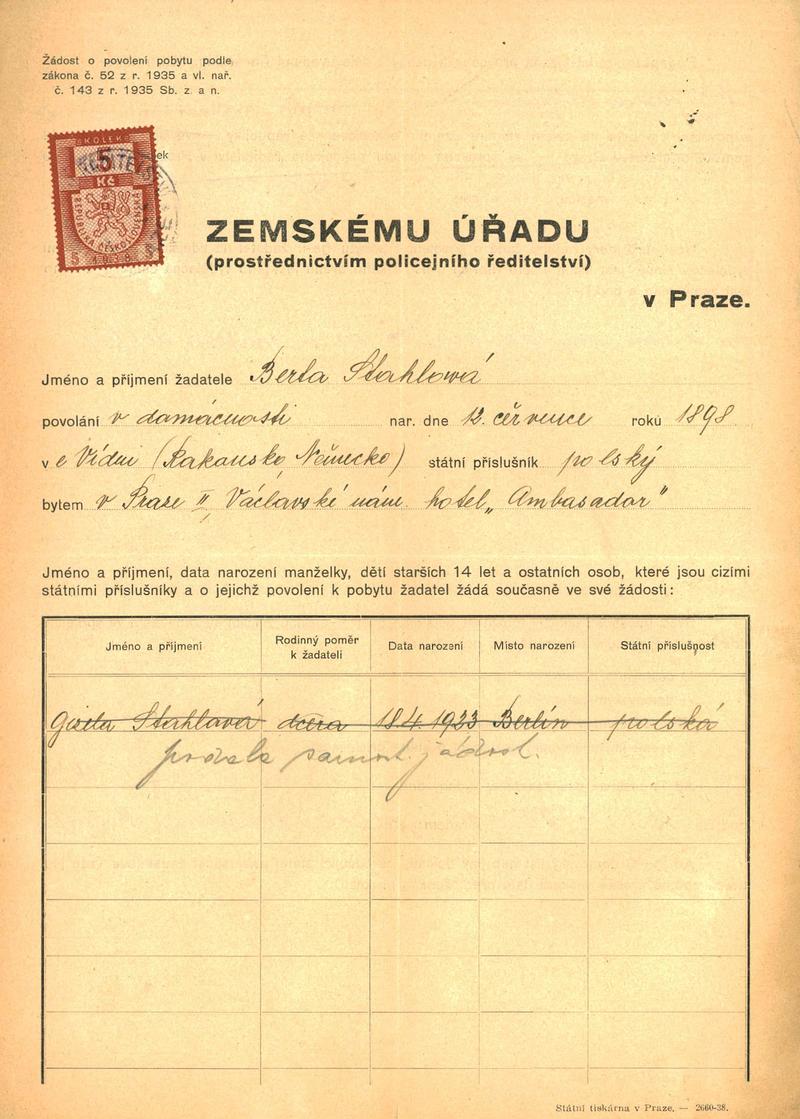 Žádost o povolení pobytu podle
zákona č. 52 z r. 1935 a vl. nař.
č. 143 z r. 1935 Sb. z. a n.
KOLEK
5
Kč
REPUBLIKA ČESKOSLOVENSKÁ
5 1938 5
ek
ZEMSKÉMU ÚŘADU
(prostřednictvím policejního ředitelství)
v Praze.
Jméno a příjmení žadatele Berta Stahlová
povolání v damácnosti nar. dne 12. července roku 1898
v e Vídni (Rakousko, Německo) státní příslušník polský
bytem v Praze II, Václavské nám. hotel „Ambasador"
Jméno a příjmení, data narození manželky, dětí starších 14 let a ostatních osob, které jsou cizími
státními příslušníky a o jejichž povolení k pobytu žadatel žádá současně ve své žádosti:
Jméno a příjmení Rodinný poměr k žadateli Data narození Místo narození Státní příslušnost
Gisela Stahlová dcera 18.4.1923 Berlín polská
podala samost. žádost.
Státní tiskárna v Praze. — 2660-38.